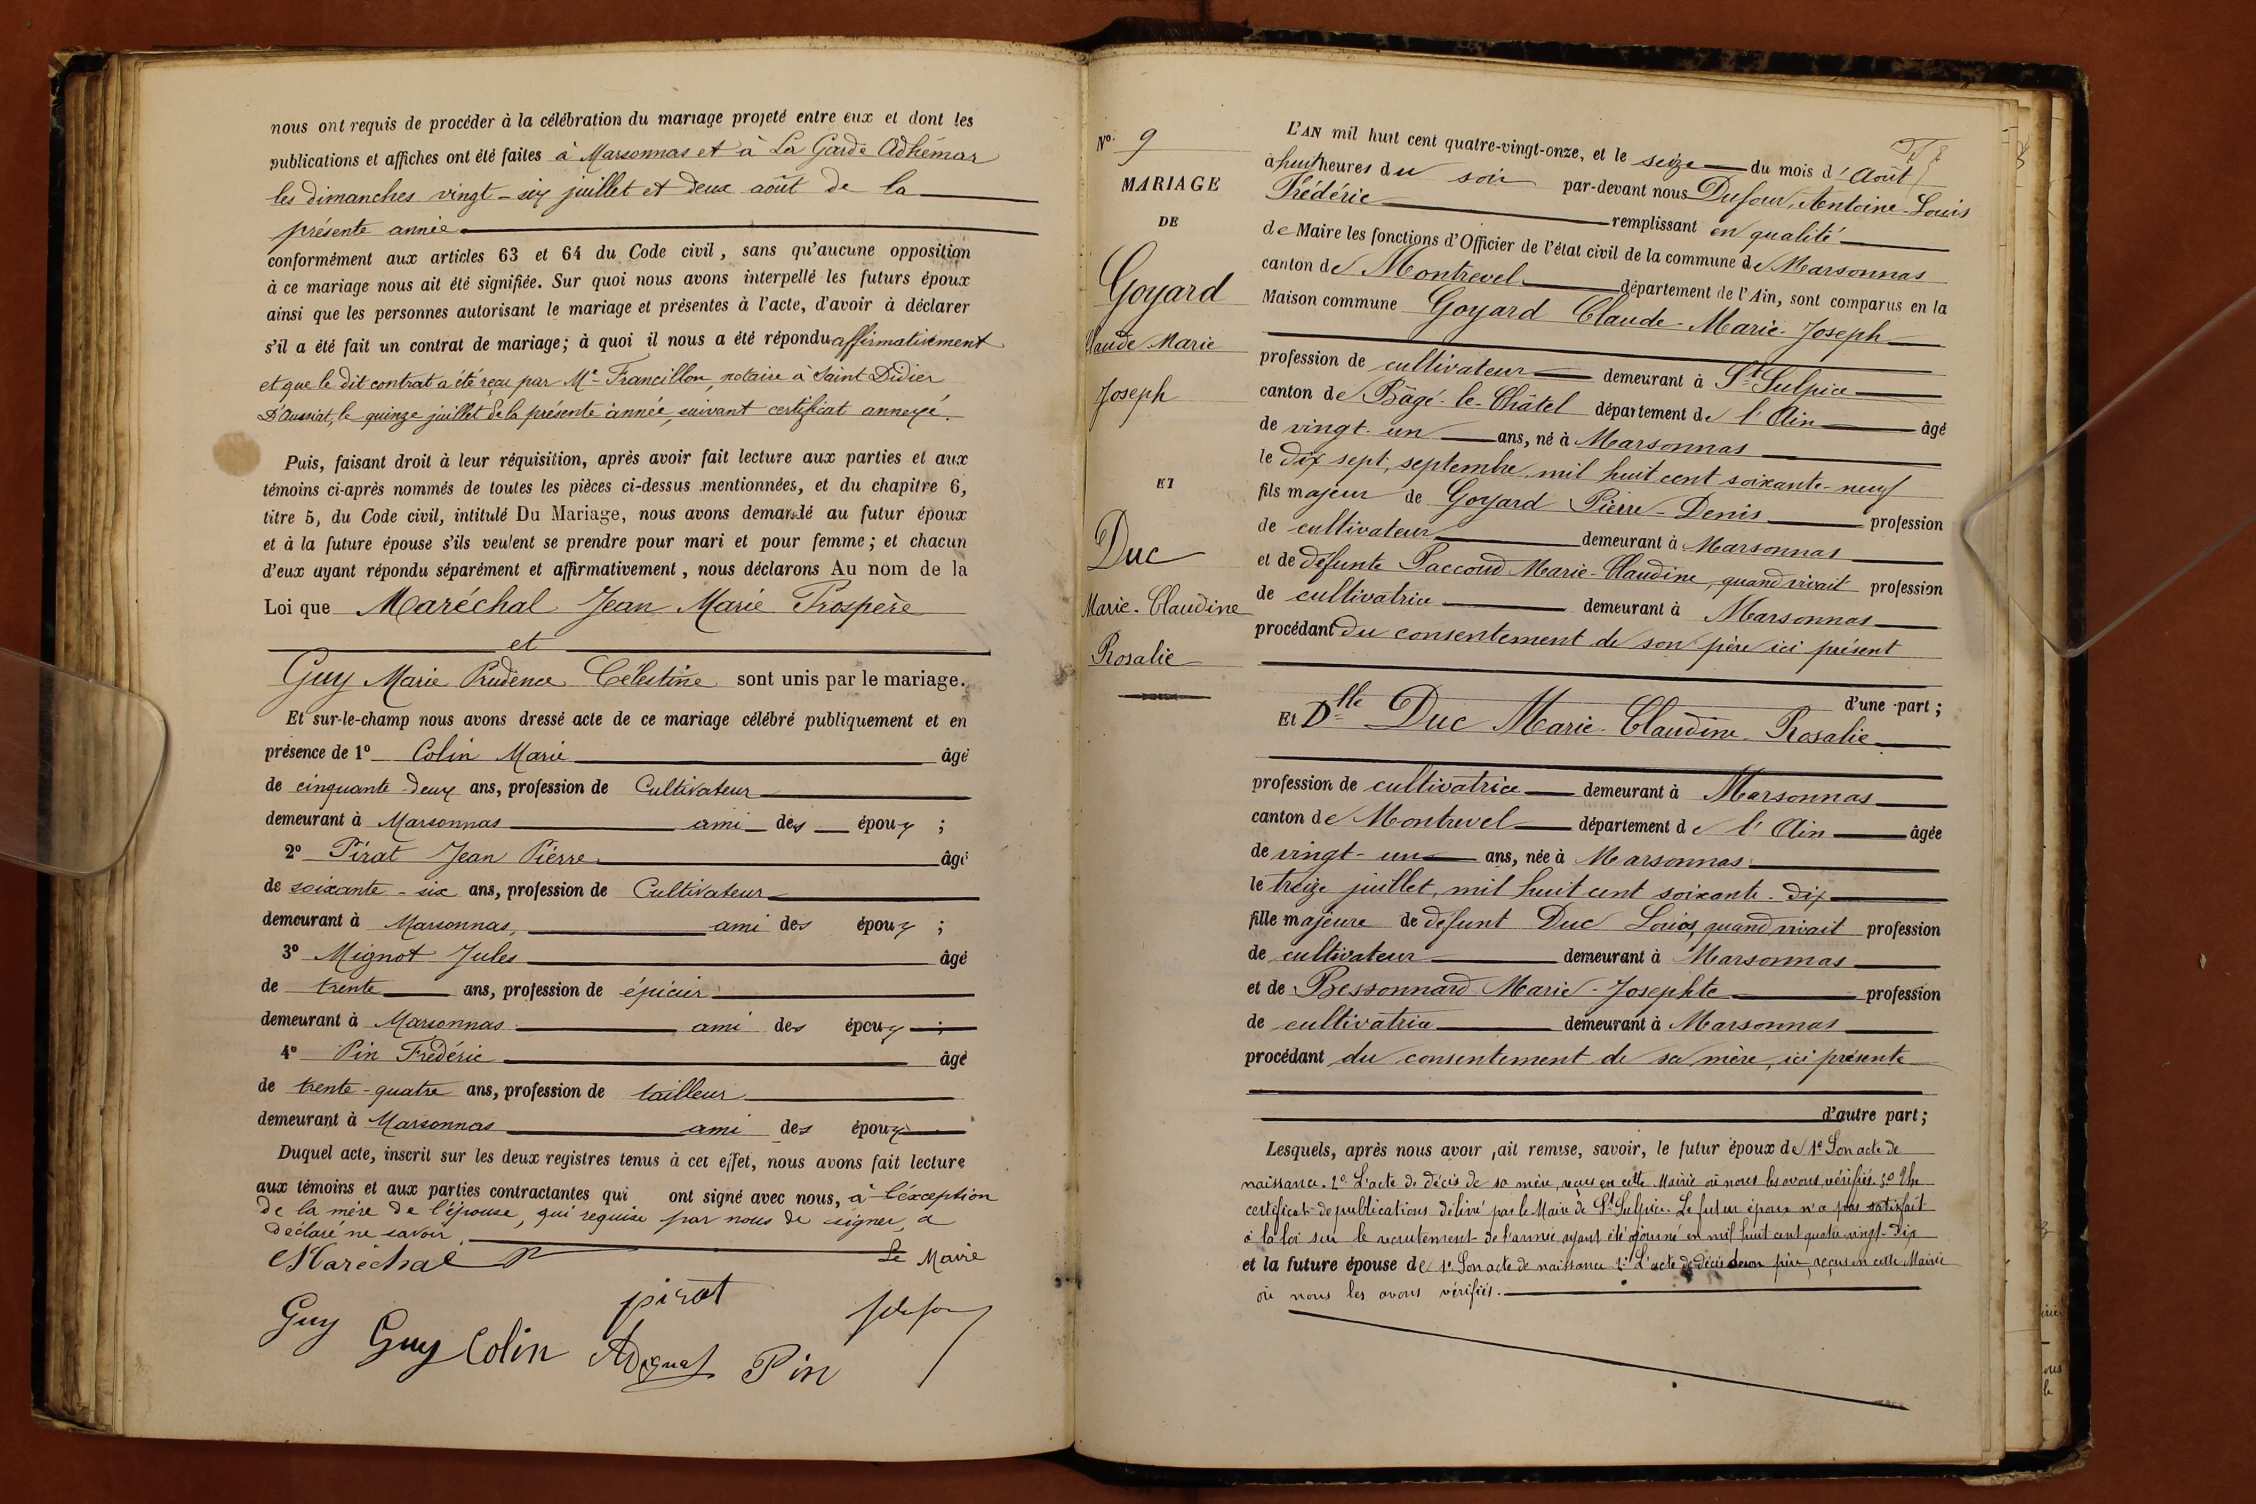 nous ont requis de procéder à la célébration du mariage projeté entre eux et dont les
publications et affiches ont été faites à Marsonnas et à La Garde Adhémar
les dimanches vingt-six juillet et deux août de la
présente année
conformément aux articles 63 et 64 du Code civil, sans qu'aucune opposition
à ce mariage nous ait été signifiée. Sur quoi nous avons interpellé les futurs époux
ainsi que les personnes autorisant le mariage et présentes à l'acte, d'avoir à déclarer
s'il a été fait un contrat de mariage; à quoi il nous a été répondu affirmativement
et que le dit contrat a été reçu par Me Francillon, notaire à Saint Didier
D'Aussiat, le quinze juillet de la présente année, suivant certificat annexé.
Puis, faisant droit à leur réquisition, après avoir fait lecture aux parties et aux
témoins ci-après nommés de toutes les pièces ci-dessus mentionnées, et du chapitre 6,
titre 5, du Code civil, intitulé Du Mariage, nous avons demandé au futur époux
et à la future épouse s'ils veulent se prendre pour mari et pour femme; et chacun
d'eux ayant répondu séparément et affirmativement, nous déclarons Au nom de la
Loi que Maréchal Jean Marie Prospère
et
Guy Marie Prudence Célestine sont unis par le mariage.
Et sur-le-champ nous avons dressé acte de ce mariage célébré publiquement et en
présence de 1º Colin Marie âgé
de cinquante-deux ans, profession de Cultivateur
demeurant à Marsonnas ami des époux ;
2º Pirat Jean Pierre âgé
de soixante-six ans, profession de Cultivateur
demeurant à Marsonnas, ami des époux ;
3º Mignot Jules âgé
de trente ans, profession de épicier
demeurant à Marsonnas ami des époux ;
4º Pin Frédéric âgé
de trente-quatre ans, profession de tailleur
demeurant à Marsonnas ami des époux
Duquel acte, inscrit sur les deux registres tenus à cet effet, nous avons fait lecture
aux témoins et aux parties contractantes qui ont signé avec nous, à l'exception
de la mère de l'épouse, qui requise par nous de signer, a
déclaré ne savoir.
Le Maire
Maréchal
pirat
Guy
Guy Colin Pin
Nº 9
MARIAGE
DE
Goyard
Claude Marie
Joseph
ET
Duc
Marie-Claudine
Rosalie
L'AN mil huit cent quatre-vingt-onze, et le seize du mois d'Août
à huit heures du soir par-devant nous Dufour, Antoine-Louis
Frédéric remplissant en qualité
de Maire les fonctions d'Officier de l'état civil de la commune de Marsonnas
canton de Montrevel département de l'Ain, sont comparus en la
Maison commune Goyard Claude-Marie-Joseph
profession de cultivateur demeurant à St Sulpice
canton de Bâgé-le-Châtel département de l'Ain âgé
de vingt-un ans, né à Marsonnas
le dix sept septembre mil huit cent soixante-neuf
fils majeur de Goyard Pierre-Denis profession
de cultivateur demeurant à Marsonnas
et de défunte Paccoud Marie-Claudine, quand vivait profession
de cultivatrice demeurant à Marsonnas
procédant du consentement de son père ici présent
d'une part ;
Et Dlle Duc Marie-Claudine-Rosalie
profession de cultivatrice demeurant à Marsonnas
canton de Montrevel département de l'Ain âgée
de vingt-un ans, née à Marsonnas
le treize juillet, mil huit cent soixante-dix
fille majeure de défunt Duc Louis, quand vivait profession
de cultivateur demeurant à Marsonnas
et de Bessonnard Marie-Josephte profession
de cultivatrice demeurant à Marsonnas
procédant du consentement de sa mère, ici présente
d'autre part ;
Lesquels, après nous avoir fait remise, savoir, le futur époux de 1º Son acte de
naissance. 2º L'acte de décès de sa mère, reçus en cette Mairie où nous les avons vérifiés. 3º Un
certificat de publications délivré par le Maire de St Sulpice. Le futur époux n'a pas satisfait
à la loi sur le recrutement de l'armée ayant été ajourné en mil huit cent quatre-vingt-dix
et la future épouse de 1º Son acte de naissance 2º L'acte de décès de son père, reçus en cette Mairie
où nous les avons vérifiés.